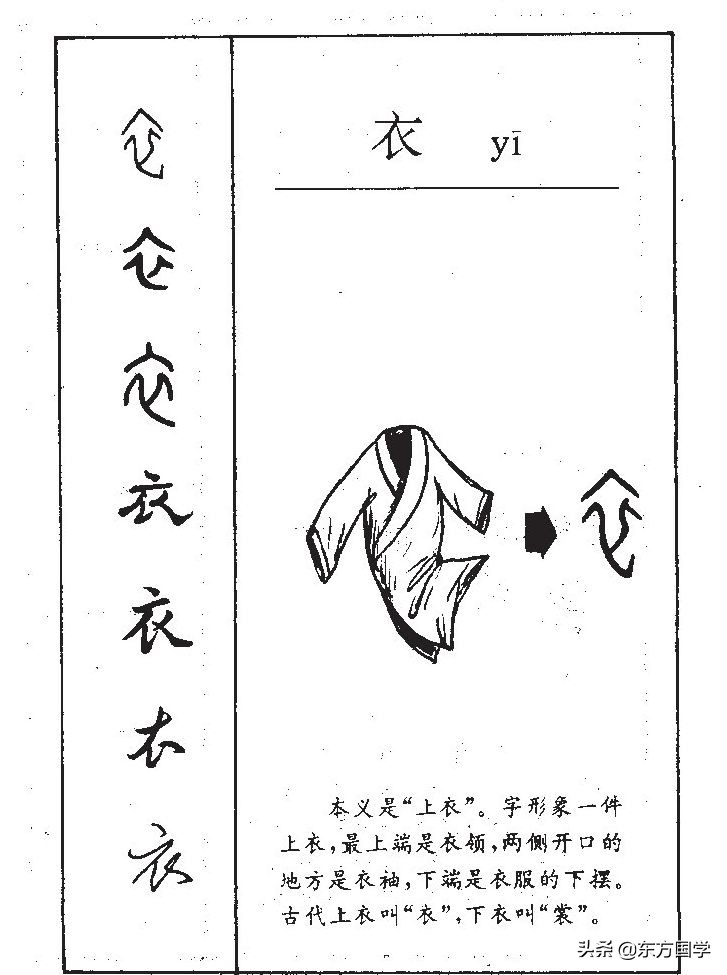 衣 yī
衣
衣
衣
衣
衣
衣
衣
本义是“上衣”。字形象一件
上衣，最上端是衣领，两侧开口的
地方是衣袖，下端是衣服的下摆。
古代上衣叫“衣”，下衣叫“裳”。
头条 @东方国学